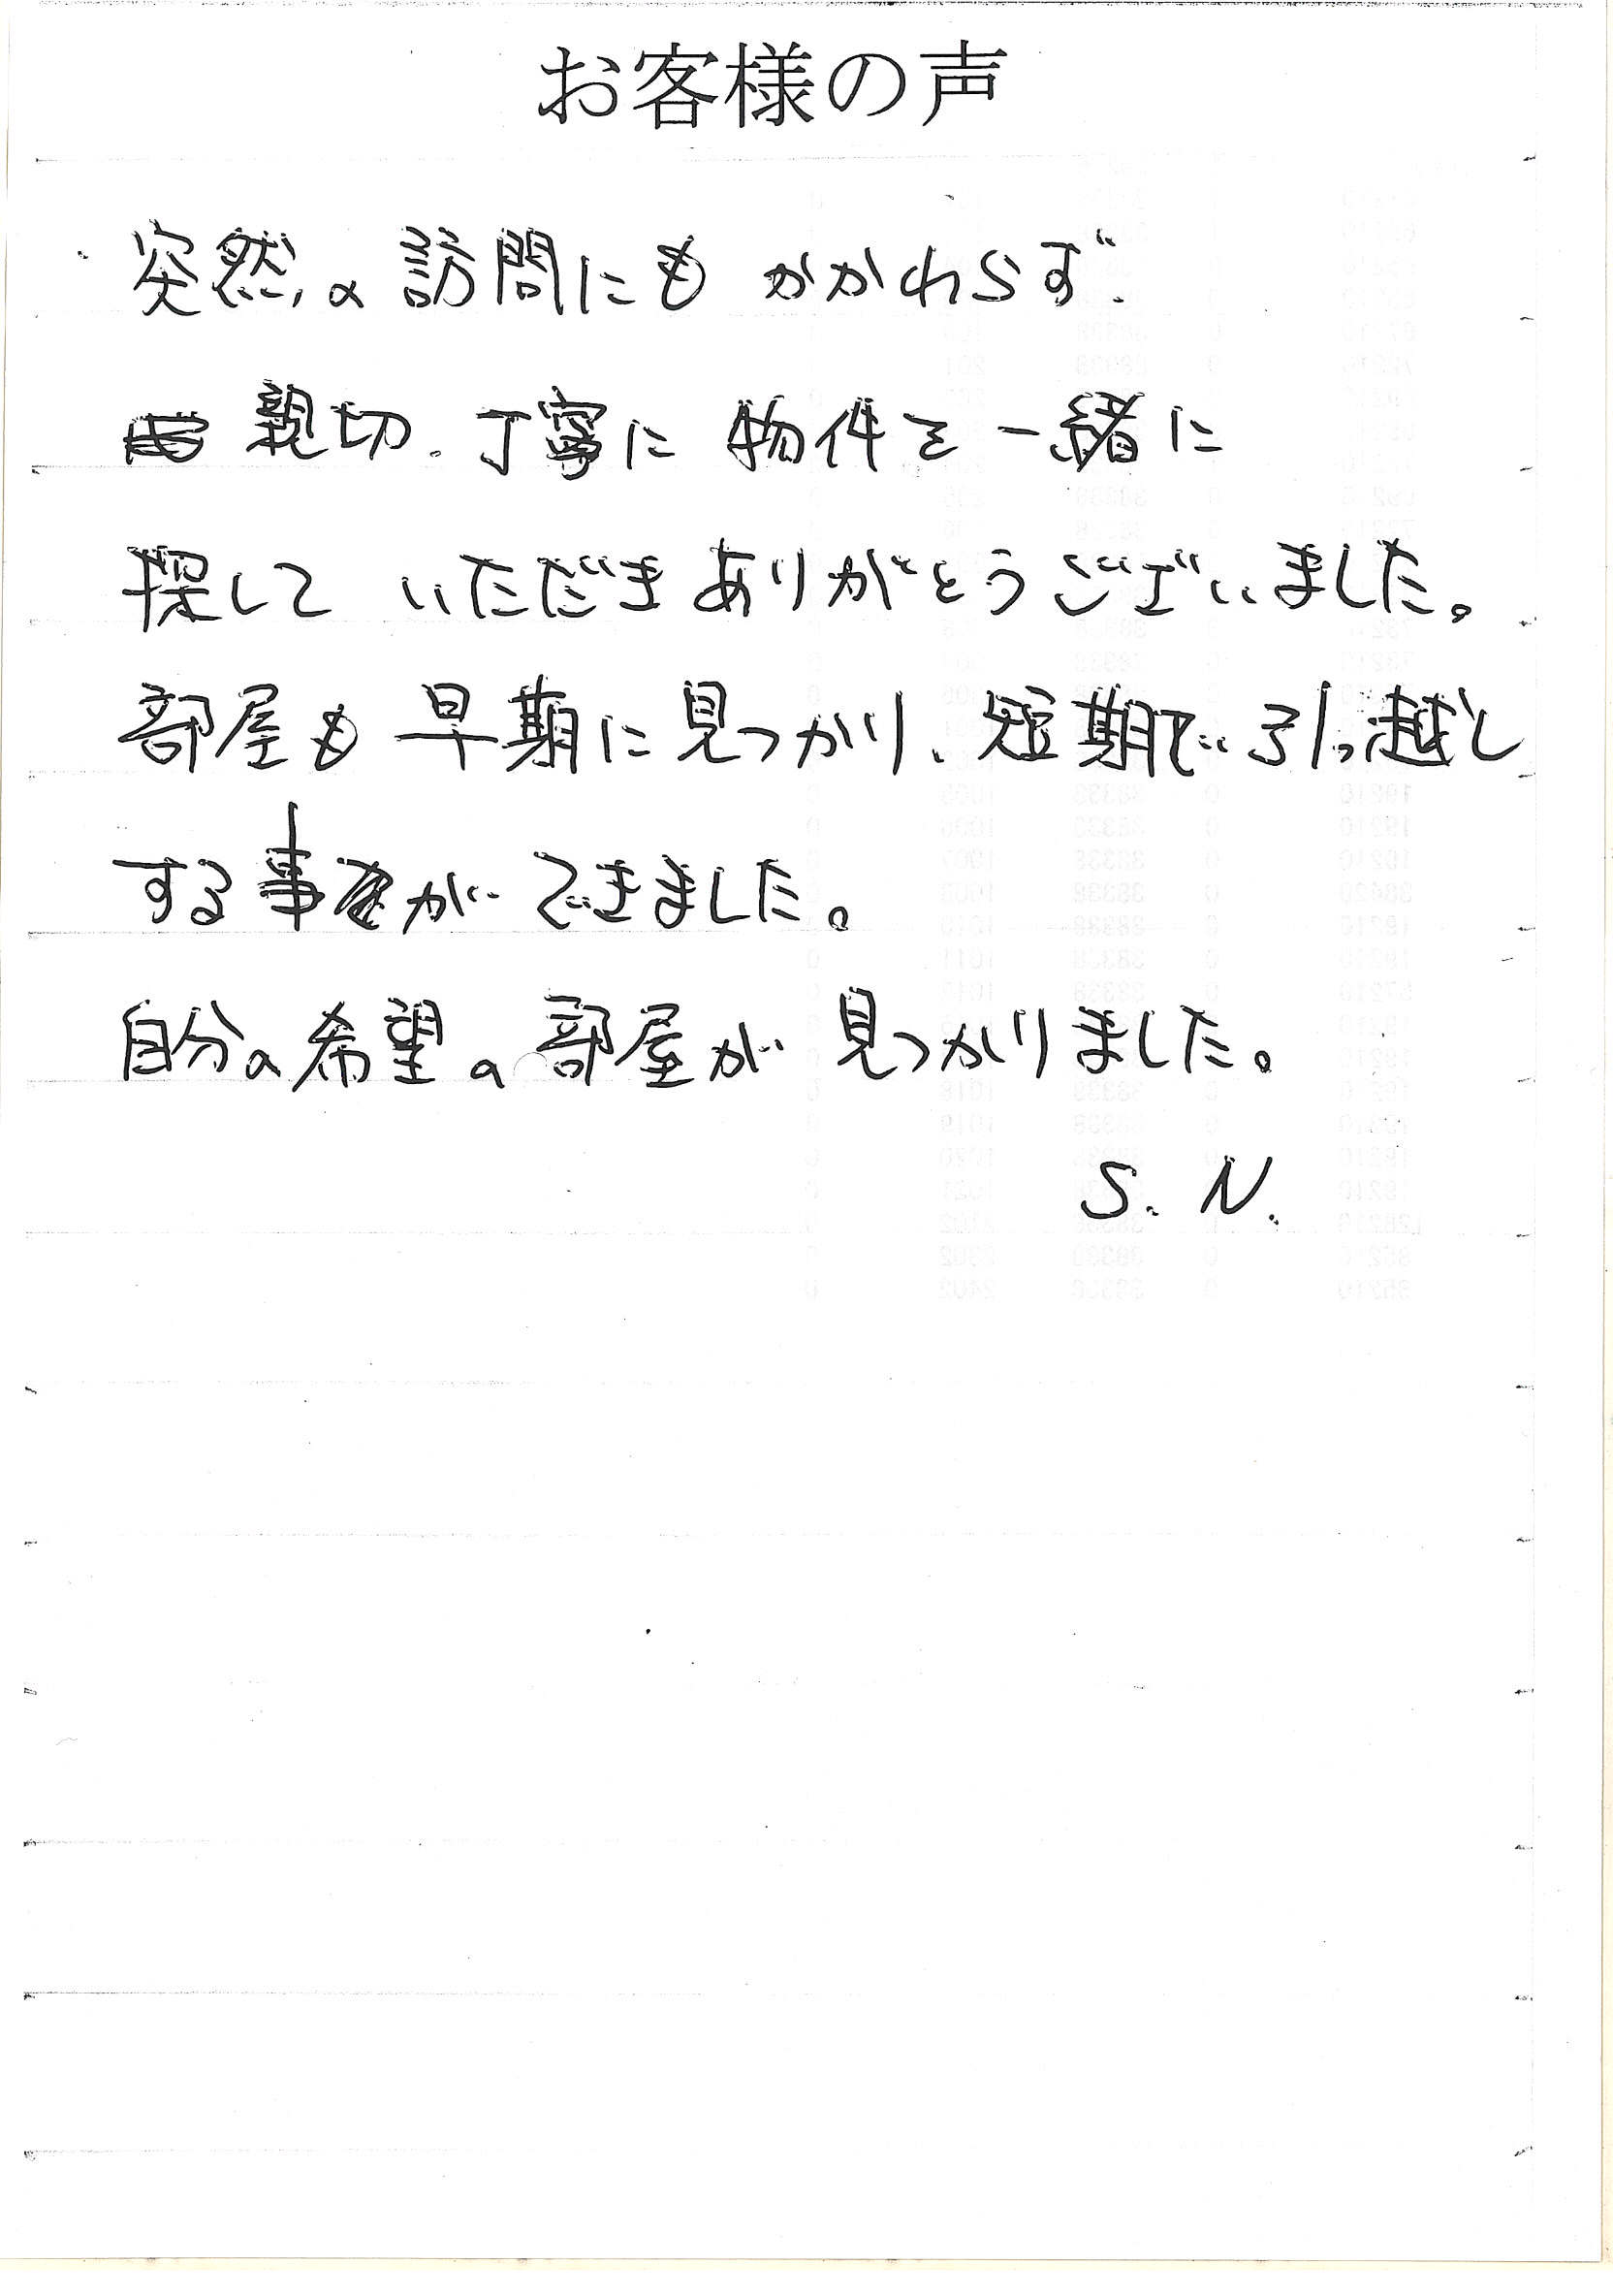 お客様の声
突然の訪問にもかかわらず、
親切、丁寧に物件を一緒に
探していただきありがとうございました。
部屋も早期に見つかり、短期で引っ越し
する事ができました。
自分の希望の部屋が見つかりました。
S. N.